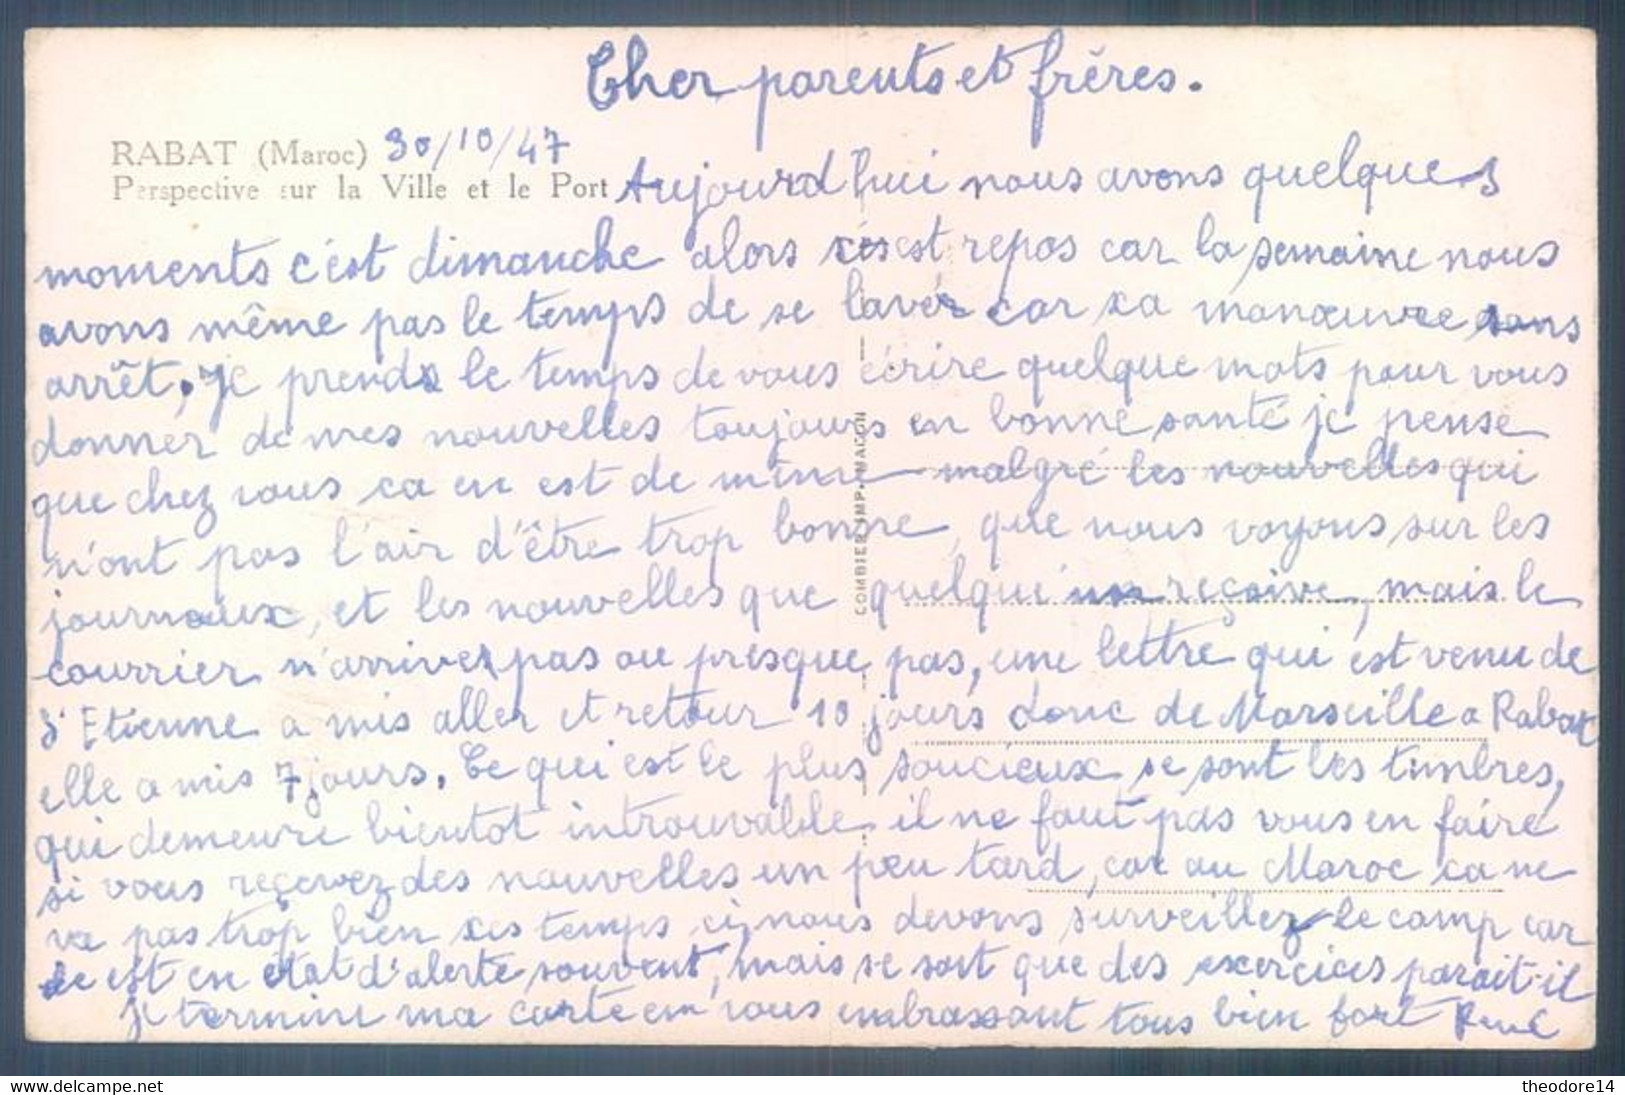 Cher parents et frêres.
RABAT (Maroc) 30/10/47
Perspective sur la Ville et le Port
Aujourd hui nous avons quelques
moments c'est dimanche alors c'est repos car la semaine nous
avons même pas le temps de se lavér car sa manœuvre sans
arrêt, je prends le temps de vous écrire quelque mots pour vous
donner de mes nouvelles toujours en bonne santé je pense
que chez vous ca en est de même malgré les nouvelles qui
n'ont pas l'air d'être trop bonne, que nous voyons sur les
journaux, et les nouvelles que quelqui'uns reçoive, mais le
courrier n'arrive pas ou presque pas, une lettre qui est venu de
S' Etienne a mis aller et retour 10 jours donc de Marseille a Rabat
elle a mis 7 jours. Ce qui est le plus soucieux, se sont les timbres,
qui demeure bientot introuvable, il ne faut pas vous en faire
si vous reçevez des nouvelles un peu tard, car au Maroc ca ne
va pas trop bien ces temps ci, nous devons surveillez le camp car
est en état d'alerte souvent, mais se sont que des exercices parait-il
je termine ma carte en vous embrassant tous bien fort René
COMBIER IMP. MACON
theodore14
www.delcampe.net